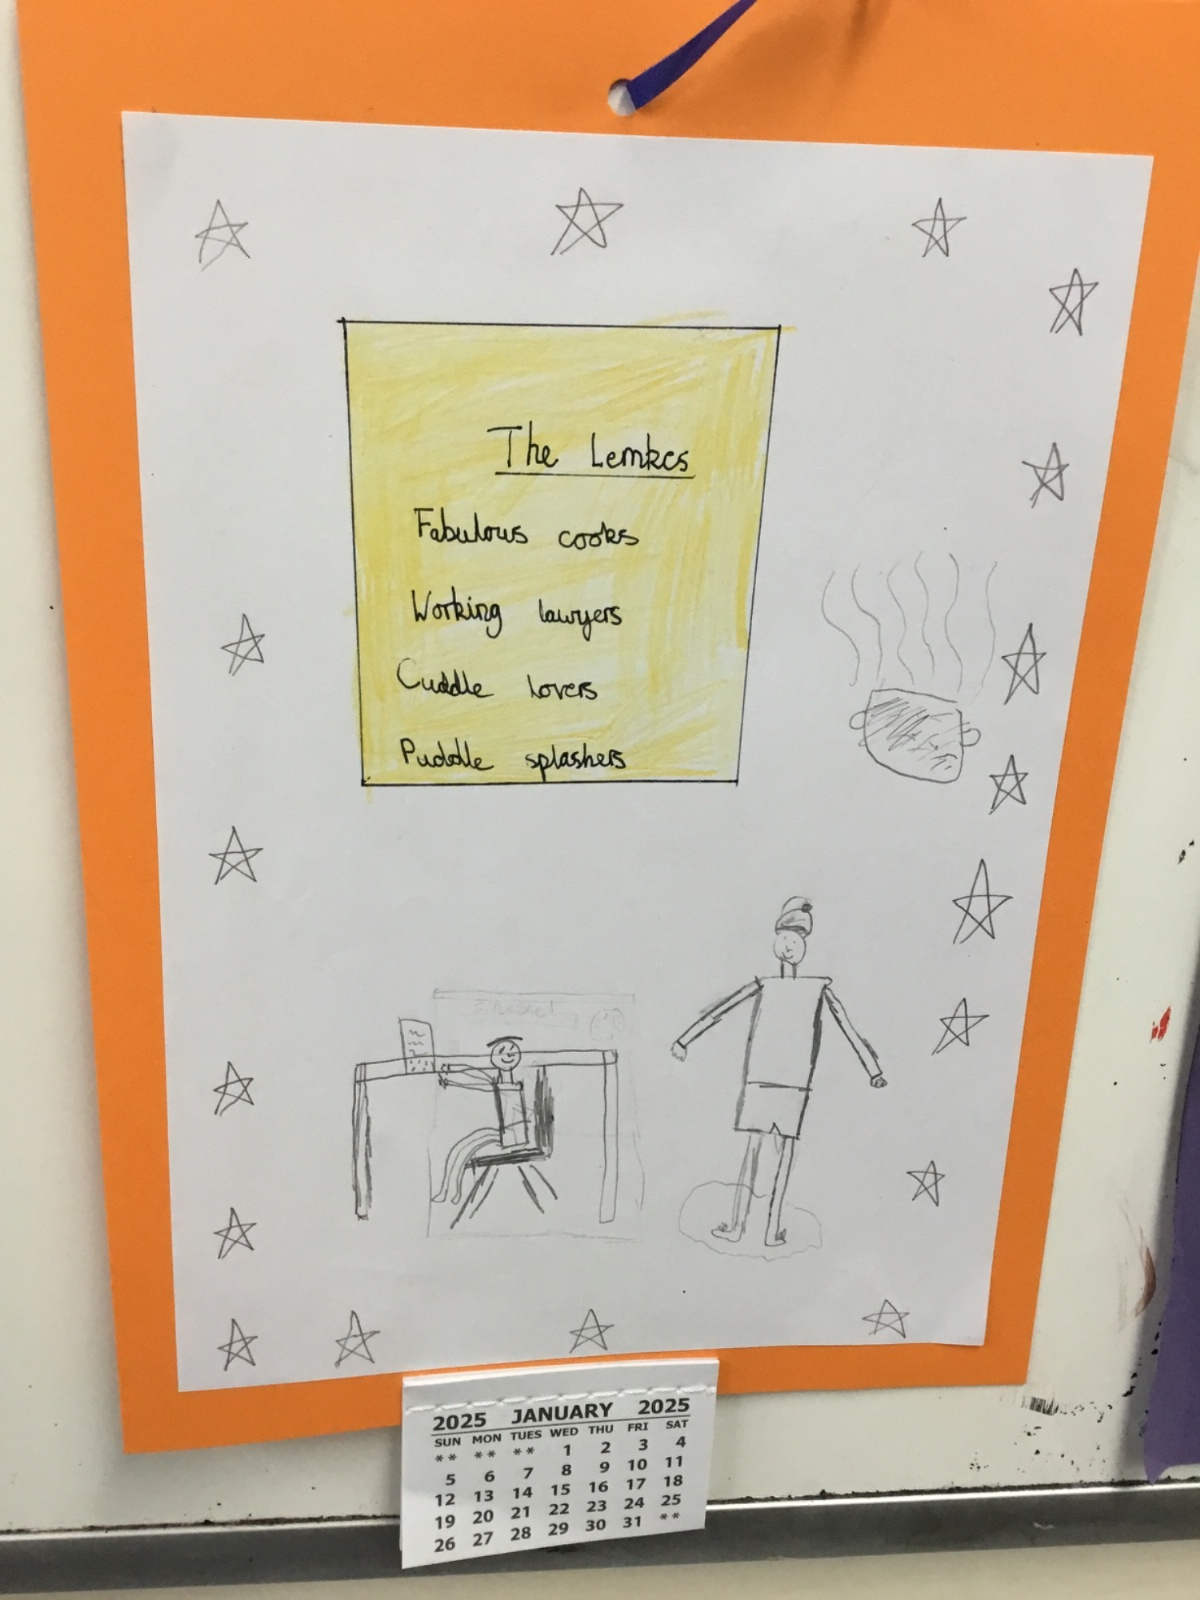 The Lemkes
Fabulous cooks
Working lawyers
Cuddle lovers
Puddle splashers
2025 JANUARY 2025
SUN MON TUES WED THU FRI SAT
** ** ** 1 2 3 4
5 6 7 8 9 10 11
12 13 14 15 16 17 18
19 20 21 22 23 24 25
26 27 28 29 30 31 **